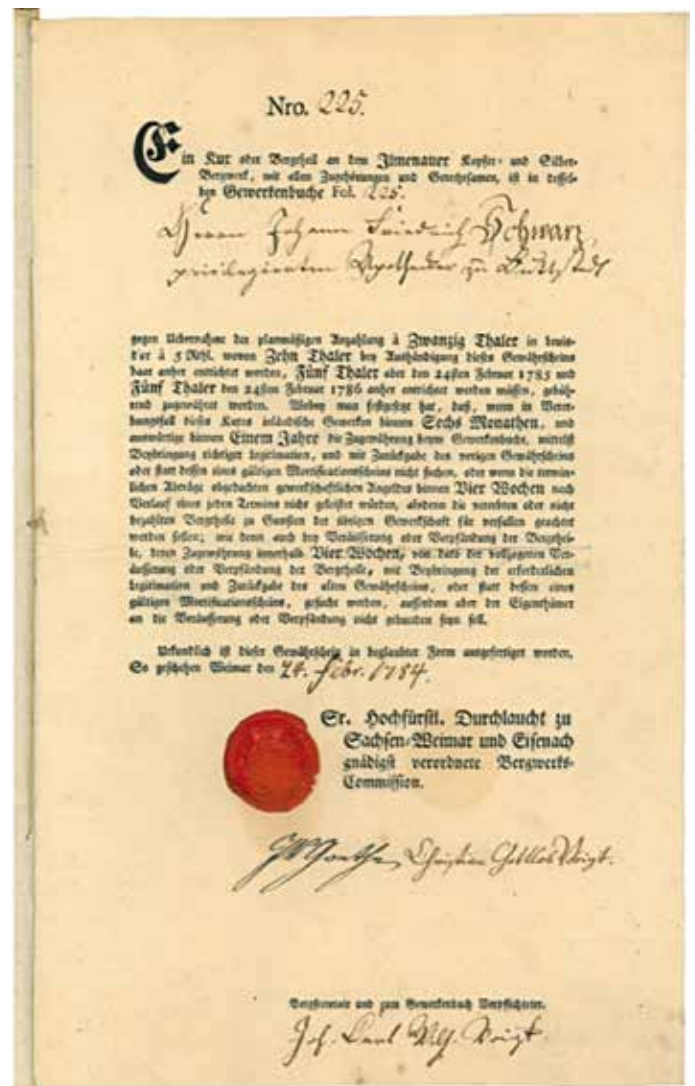 Nro. 225.
Ein Kux oder Bergtheil an dem Ilmenauer Kupfer- und Silber-
Bergwerk, mit allen Zugehörungen und Gerechtsamen, ist in dessel-
ben Gewerkenbuche Fol. 225.
Herrn Johann Friedrich Schwarz,
privilegirten Apotheker zu Buttstedt
gegen Uebernahme der planmäßigen Anzahlung à Zwanzig Thaler in Louis-
d'or à 5 Rthl. wovon Zehn Thaler bey Aushändigung dieses Gewährscheins
baar anher entrichtet worden, Fünf Thaler aber den 24sten Februar 1785 und
Fünf Thaler den 24sten Februar 1786 anher entrichtet werden müssen, gebüh-
rend zugewähret worden. Wobey man festgesetzt hat, daß, wenn in Verer-
bungsfall dieses Kuxes inländische Gewerken binnen Sechs Monathen, und
auswärtige binnen Einem Jahre die Zugewährung beym Gewerkenbuche, mittelst
Beybringung richtiger Legitimation, und mit Zurückgabe des vorigen Gewährscheins
oder statt dessen eines gültigen Mortificationsscheins nicht suchen, oder wenn die termin-
lichen Abträge obgedachten gewerkschaftlichen Angeldes binnen Vier Wochen nach
Verlauf eines jeden Termins nicht geleistet würden, alsdenn die vererbten oder nicht
bezahlten Bergtheile zu Gunsten der übrigen Gewerkschaft für verfallen geachtet
werden sollen; wie denn auch bey Veräusserung oder Verpfändung der Bergthei-
le, deren Zugewährung innerhalb Vier Wochen, von dato der vollzogenen Ver-
äusserung oder Verpfändung der Bergtheile, mit Beybringung der erforderlichen
Legitimation und Zurückgabe des alten Gewährscheins, oder statt dessen eines
gültigen Mortificationsscheins, gesucht werden, ausserdem aber der Eigenthümer
an die Veräusserung oder Verpfändung nicht gebunden seyn soll.
Urkundlich ist dieser Gewährschein in beglaubter Form ausgefertiget worden.
So geschehen Weimar den 24. Febr. 1784.
Sr. Hochfürstl. Durchlaucht zu
Sachsen-Weimar und Eisenach
gnädigst verordnete Bergwerks-
Commission.
JWGoethe Christian Gottlob Voigt.
Bergsecretair und zum Gewerkenbuch Verpflichteter.
Joh. Carl Wilh. Voigt.